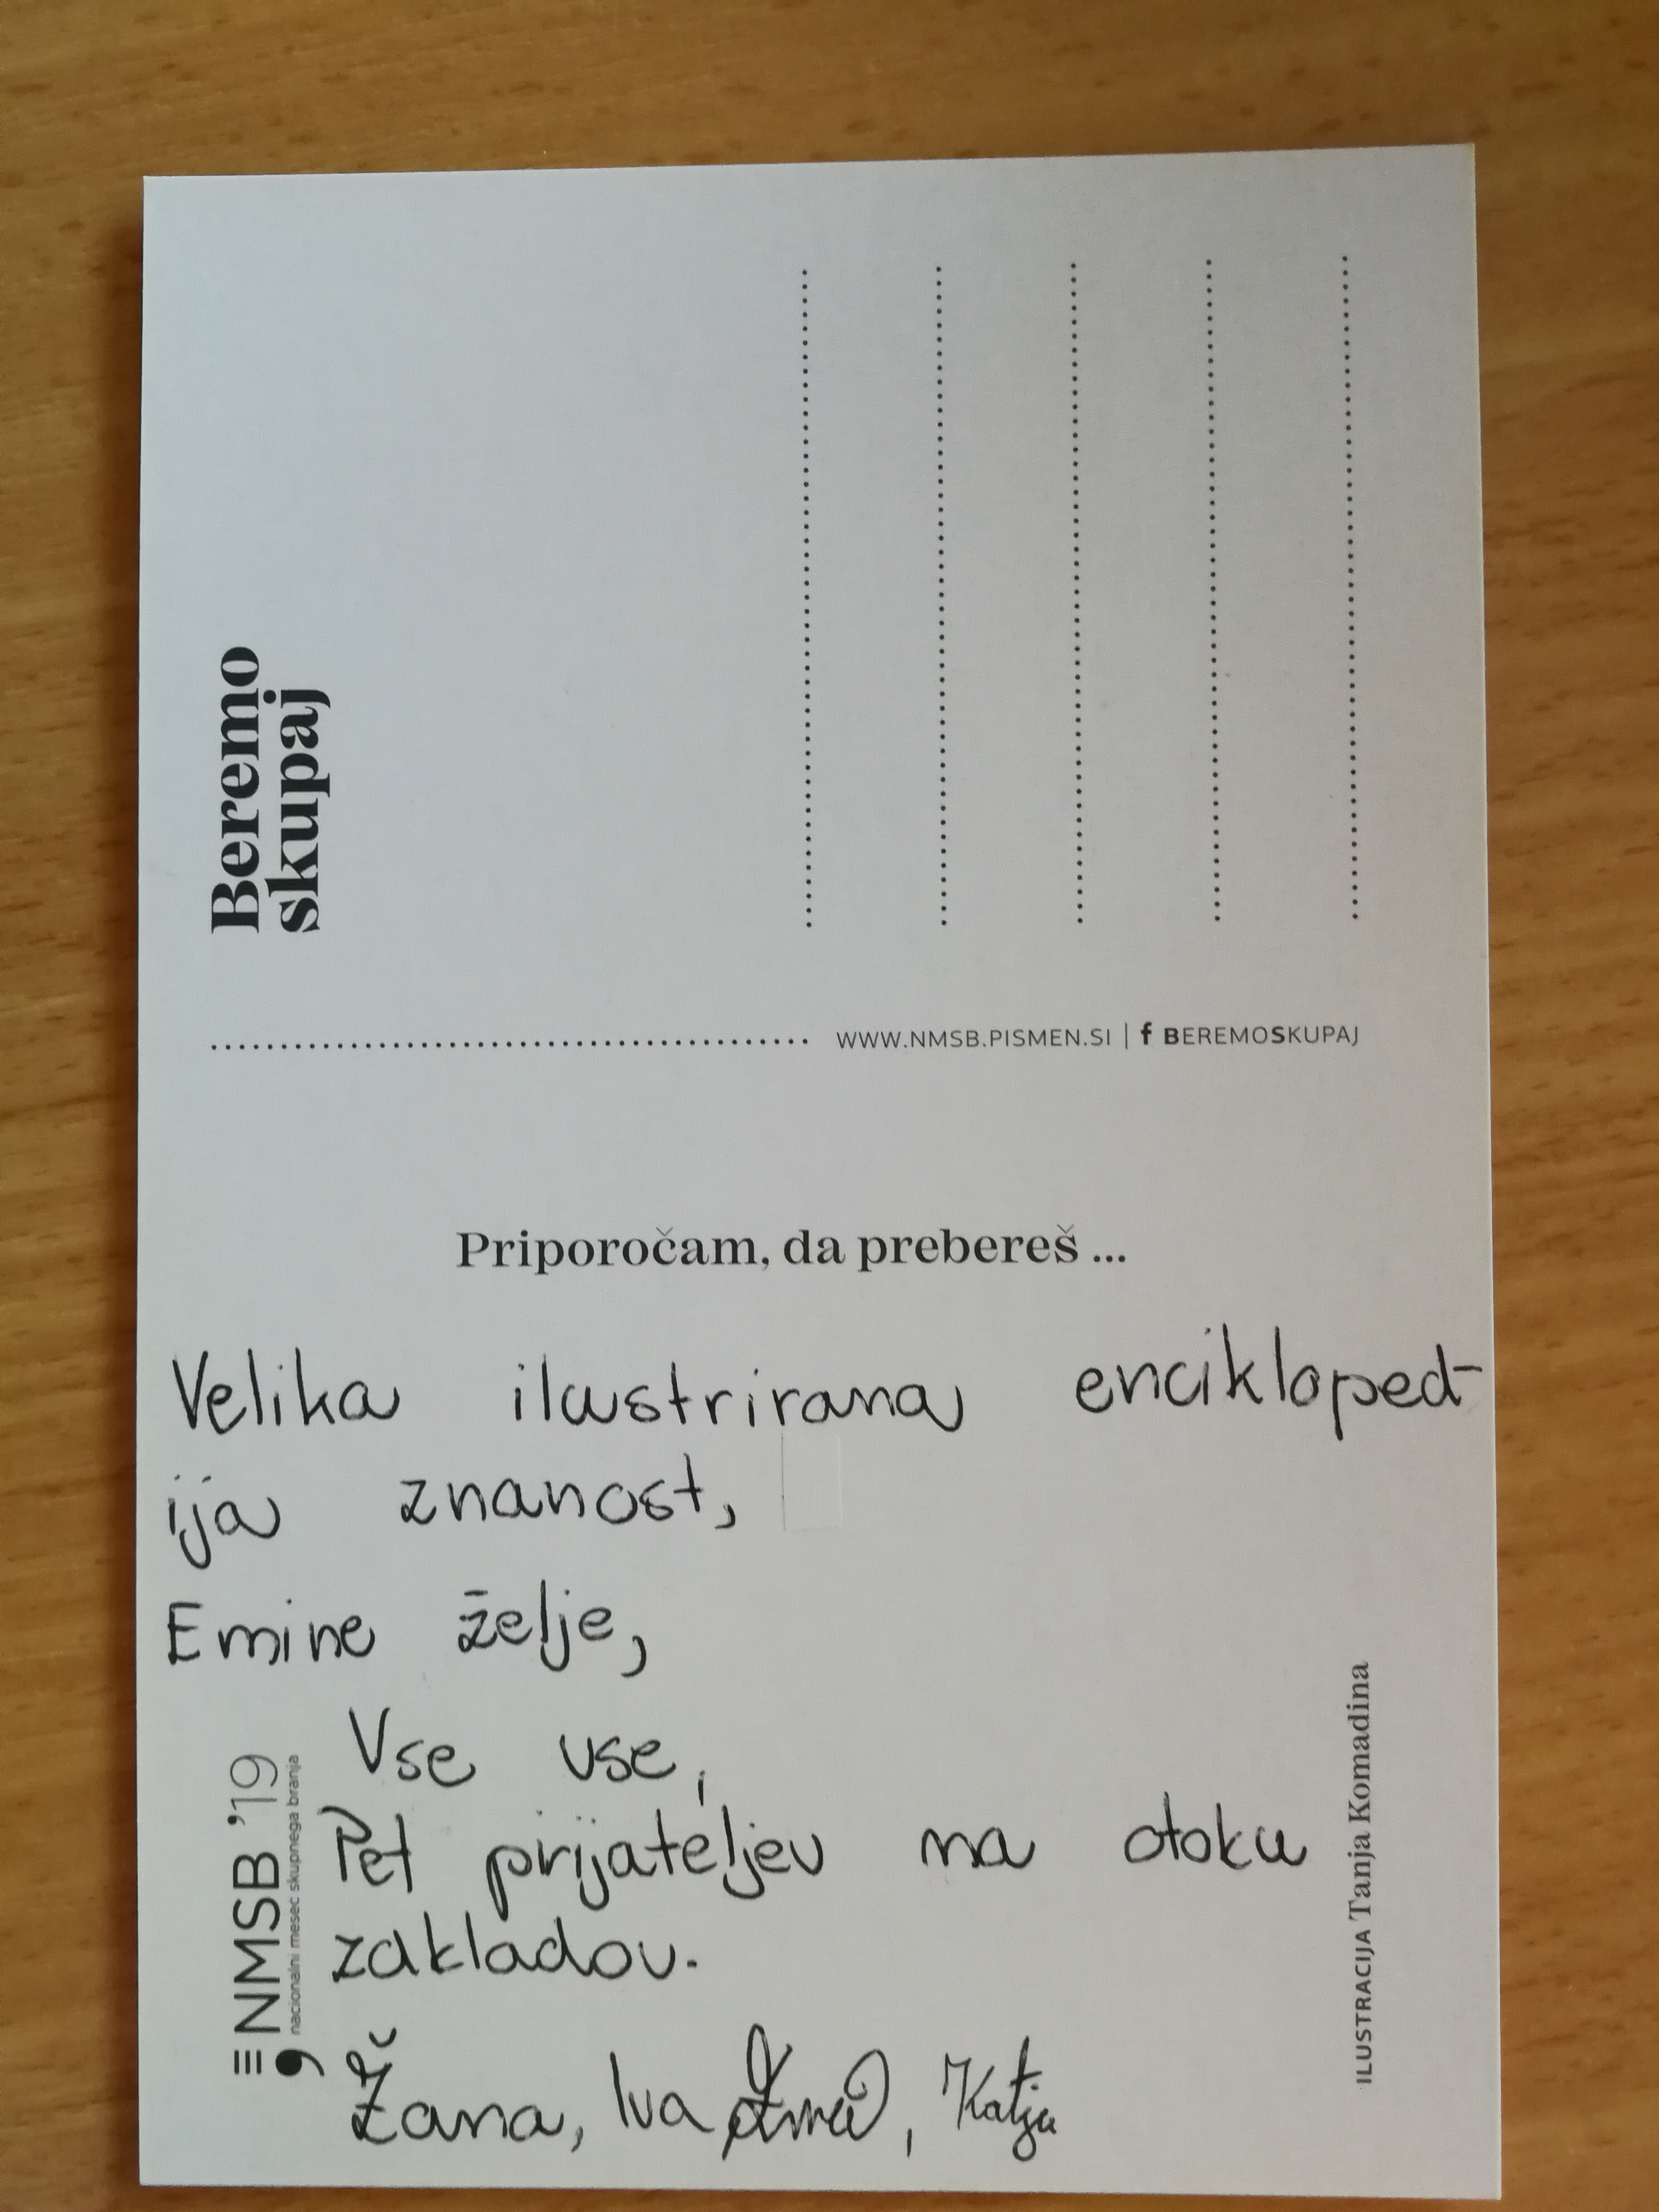 Beremo
skupaj
WWW.NMSB.PISMEN.SI | f BEREMOSKUPAJ
Priporočam, da prebereš ...
Velika ilustrirana encikloped-
ija znanost,
Emine želje,
Vse vse,
Pet prijateljev na otoku
zakladov.
Žana, Iva , Katja
NMSB '19
nacionalni mesec skupnega branja
ILUSTRACIJA Tanja Komadina